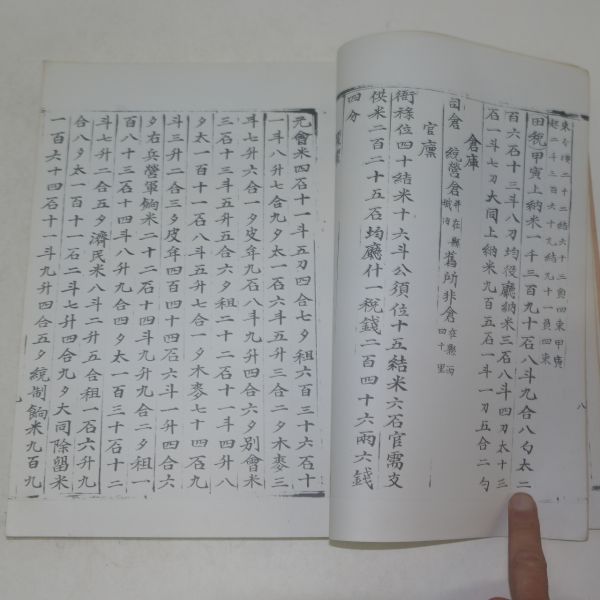 田稅 甲寅上納米一千三百九十石八斗九合八勺太二
百六石十三斗八刀均役廳納米三石八斗四刀太十三
石一斗七刀大同上納米九百五石一斗一刀五合二勺
倉庫
司倉 統營倉 并在縣城內 舊所非倉 在縣西四十里
官廩
衙祿位四十結米十六斗公須位十五結米六石官需支
供米二百二十五石均廳什一稅錢二百四十六兩六錢
四分
元會米四石十一斗五刀四合七夕租六百三十六石十
一斗八升七合九夕太一百六斗五升三合二夕木麥三
斗七升六合一夕皮牟九石八斗九升四合六夕別會米
三石十三斗五升五合六夕租二十二石十一斗四升八
夕太一百十一石八斗五升七合一夕木麥七十四石九
斗三升二合三夕皮牟四百四十四石六斗一升四合六
夕右兵營軍餉米二十二石十四斗九升九合二夕租一
百八十三石十四斗八升九合四夕太一百三十石十二
斗七升二合五夕濟民米八斗二升五合租一石六升九
合八夕太一百十一石二斗七升四合九夕大同除留米
一百六十四石十一斗九升四合五夕統制餉米九百九
八